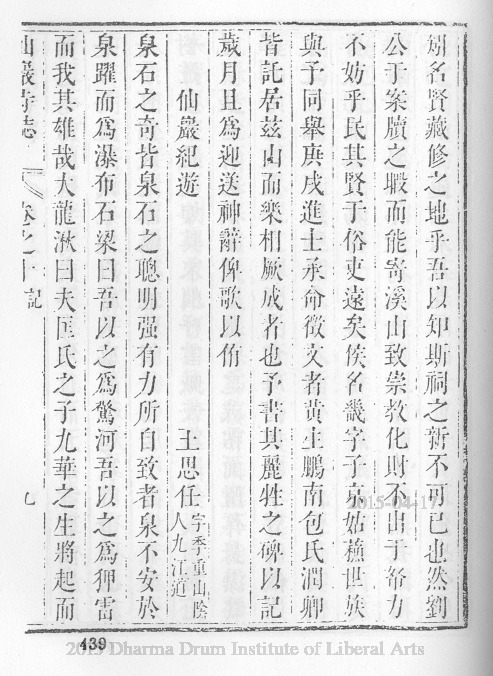 矧名賢藏修之地乎吾以知斯祠之新不可已也然劉
公于案牘之暇而能寄溪山致崇教化財不出于帑力
不妨乎民其賢于俗吏遠矣侯名畿字子京姑蘓世族
與予同舉庚戌進士承命徵文者黃生鵬南包氏潤卿
皆託居茲山而樂相厥成者也予書其麗牲之碑以記
歲月且為迎送神辭俾歌以侑
仙巖紀遊
王思任字季重山陰人九江道
泉石之奇皆泉石之聰明强有力所自致者泉不安於
泉躍而為瀑布石梁曰吾以之為驚河吾以之為狎雷
而我其雄哉大龍湫曰夫匡氏之子九華之生將起而
仙巖寺志 卷之十 記 九
439
2015-04-17
2015 Dharma Drum Institute of Liberal Arts